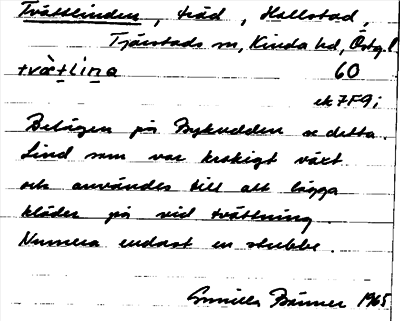 Tvättlinden, träd, Hallstad,
Tjärstads sn, Kinda hd, Östg.l.
tvàtlina 60
ek 7F9i
Belägen på Bykudden se detta.
Lind som var krokigt växt
och användes till att lägga
kläder på vid tvättning.
Numera endast en stubbe.
Gunilla Bänner 1965